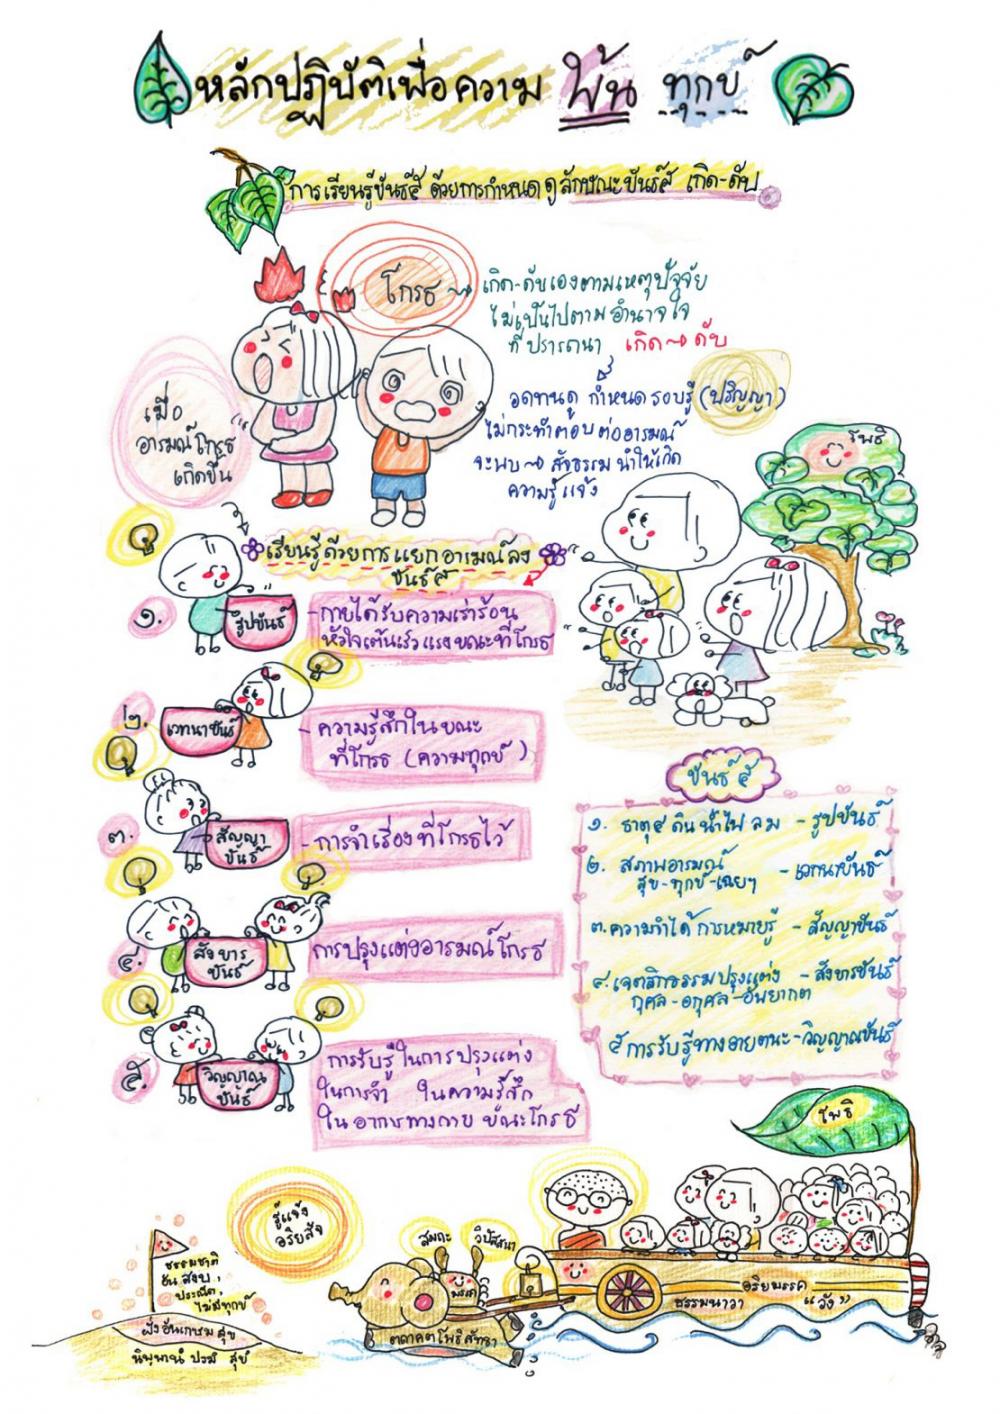 หลักปฏิบัติเพื่อความ พ้น ทุกข์
การเรียนรู้ขันธ์๕ ด้วยการกำหนดดูลักษณะขันธ์๕ เกิด-ดับ
โกรธ
เกิด-ดับเองตามเหตุปัจจัย
ไม่เป็นไปตามอำนาจใจ
ที่ปรารถนา เกิด → ดับ
อดทนดู กำหนดรอบรู้ (ปริญญา)
ไม่กระทำตอบต่ออารมณ์
จะพบ → สัจธรรม นำให้เกิด
ความรู้แจ้ง
เมื่อ
อารมณ์โกรธ
เกิดขึ้น
โพธิ
เรียนรู้ด้วยการแยกอารมณ์ลง
ขันธ์๕
๑.
รูปขันธ์
-กายได้รับความเร่าร้อน
หัวใจเต้นเร็ว แรงขณะที่โกรธ
๒.
เวทนาขันธ์
-ความรู้สึกในขณะ
ที่โกรธ (ความทุกข์)
๓.
สัญญา
ขันธ์
-การจำเรื่องที่โกรธไว้
๔.
สังขาร
ขันธ์
การปรุงแต่งอารมณ์โกรธ
๕.
วิญญาณ
ขันธ์
การรับรู้ในการปรุงแต่ง
ในการจำ ในความรู้สึก
ในอาการทางกาย ขณะโกรธ
ขันธ์ ๕
๑. ธาตุ๔ ดิน น้ำ ไฟ ลม - รูปขันธ์
๒. สภาพอารมณ์
สุข-ทุกข์-เฉยๆ - เวทนาขันธ์
๓. ความจำได้ การหมายรู้ - สัญญาขันธ์
๔. เจตสิกธรรมปรุงแต่ง - สังขารขันธ์
กุศล-อกุศล-อัพยากต
๕ การรับรู้ทางอายตนะ - วิญญาณขันธ์
โพธิ
รู้แจ้ง
อริยสัจ
สมถะ
วิปัสสนา
มรรค
ตถาคตโพธิสัทธา
อริยมรรค
ธรรมนาวา "วัง"
ธรรมชาติ
อันสงบ,
ประณีต,
ไม่มีทุกข์
ฝั่งอันเกษมสุข
นิพพานํ ปรมํ สุขํ